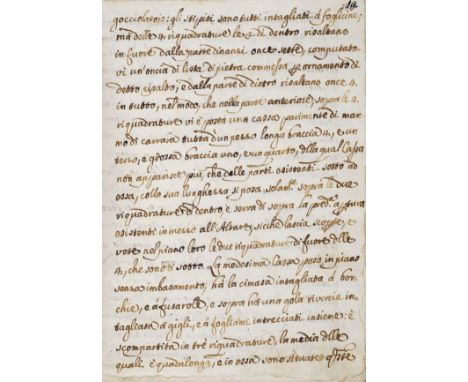 14
gocciolatoie: gli stipiti sono tutti intagliati à fogliami,
mà delle 4. riquadrature le 2. di dentro risaltano
in fuore dalla parte dinanzi once sette, computata
vi un'oncia di lista di pietra commessa per ornamento di
detto risalto, e dalla parte di dietro risaltano once 4.
in tutto, nel modo, che nella parte anteriore, sopra le 4.
riquadrature vi è posta una cassa parimente di mar
mo di carrara tutta d'un pezzo longa braccia 4, e un
terzo, e grossa braccia uno, e un quarto, della qual Cassa
non apparisce più, che delle parti esistenti sotto ad
essa, collo sua lunghezza si posa solam.te sopra le due
riquadrature di dentro, e serra di sopra la pred.a apertura
esistenti in mezzo all'Altare, sicche lascia scoperte, e
vote nel piano loro le due riquadrature di fuore delle
4, che sono di sotto. La medesima Cassa posa in piano
senza imbasamento, hà la cimasa intagliata à bor
chie, e à fusarole, e sopra hà una gola riversia in-
tagliata à gigli, e à fogliami intrecciati insieme: è
scompartita in trè riquadrature, la media delle
quali è quadrilonga, e in essa sono situate q.ste